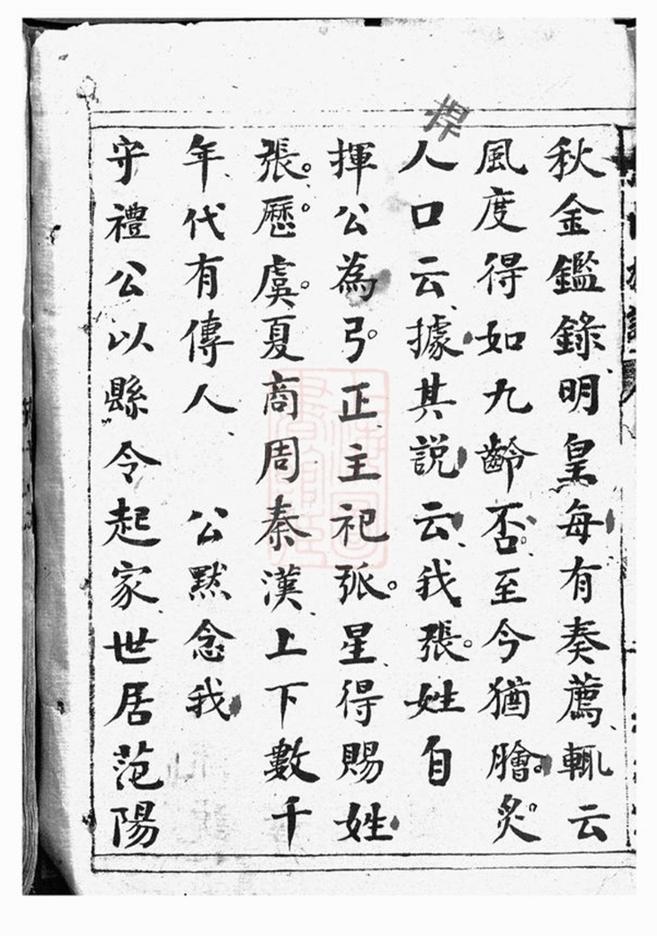 秋金鑑錄明皇每有奏薦輒云
風度得如九齡否至今猶膾炙
人口云據其説云我張姓自
揮公為弓正主祀弧星得賜姓
張歷虞夏商周秦漢上下數千
年代有傳人 公默念我
守禮公以縣令起家世居范陽